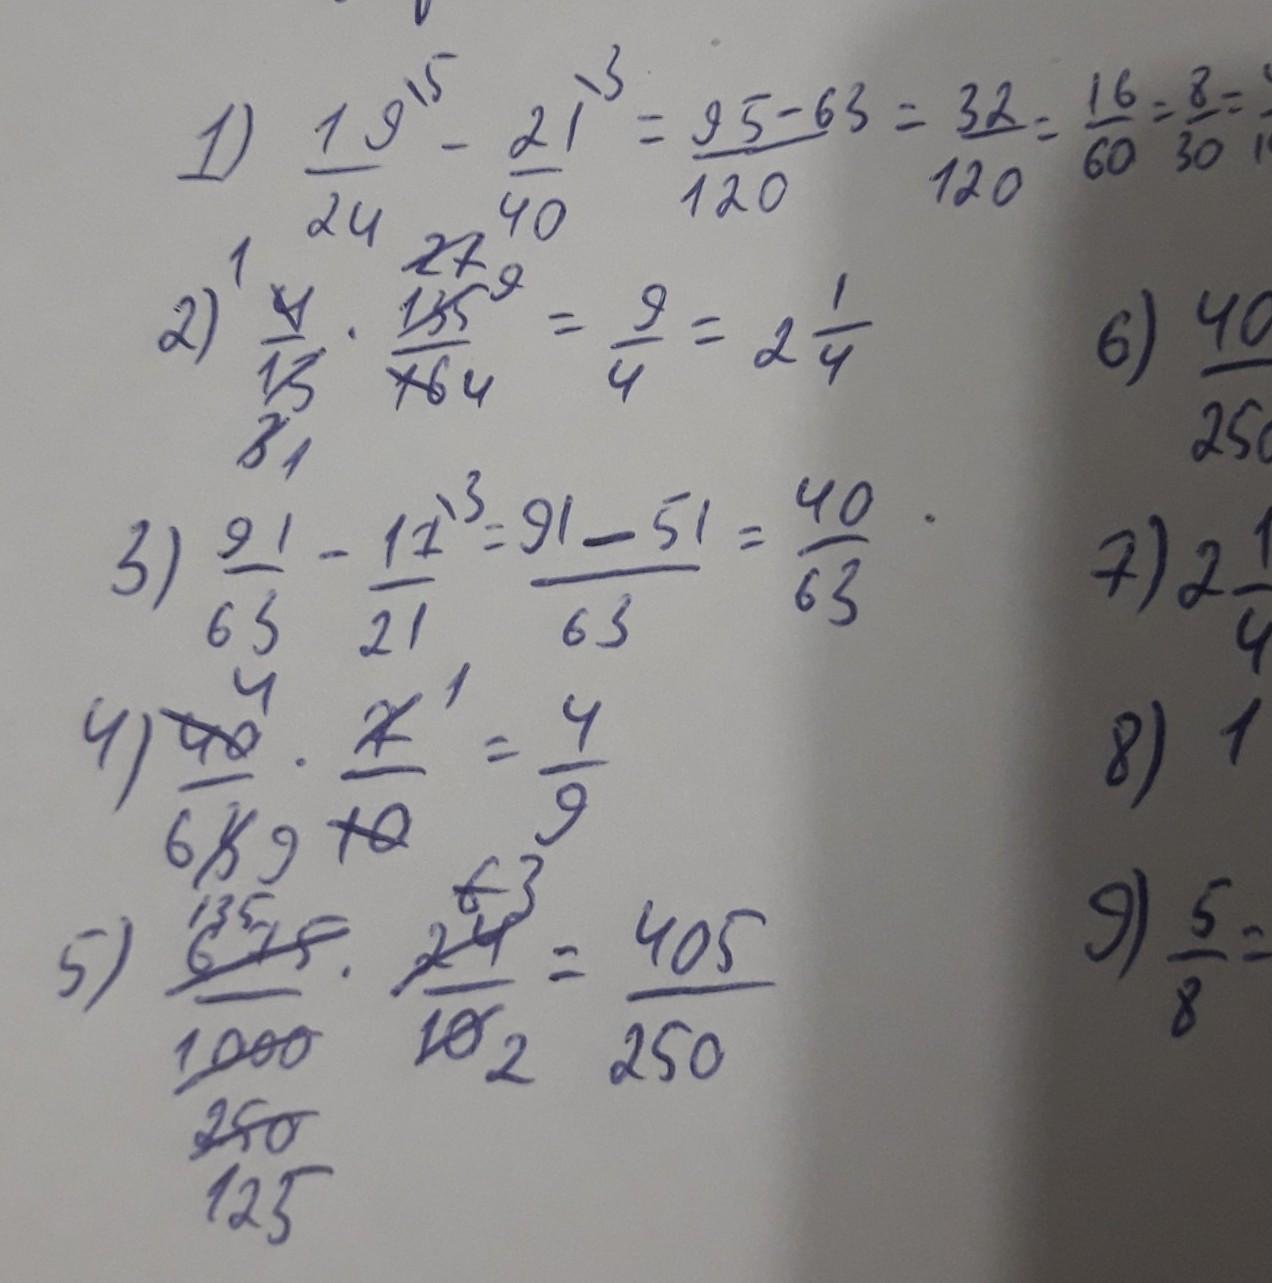 1) 19/24 \5 - 21/40 \3 = 95-63/120 = 32/120 = 16/60 = 8/30 =
2) 4/15 · 135/16 = 9/4 = 2 1/4
1 27 9 3 1 4
6) 40/250
3) 91/63 - 17/21 \3 = 91-51/63 = 40/63
7) 2 1/4
4) 40/63 · 7/10 = 4/9
4 9 1
8) 1
5) 675/1000 · 24/10 = 405/250
135 6 3 2
250
125
9) 5/8 =